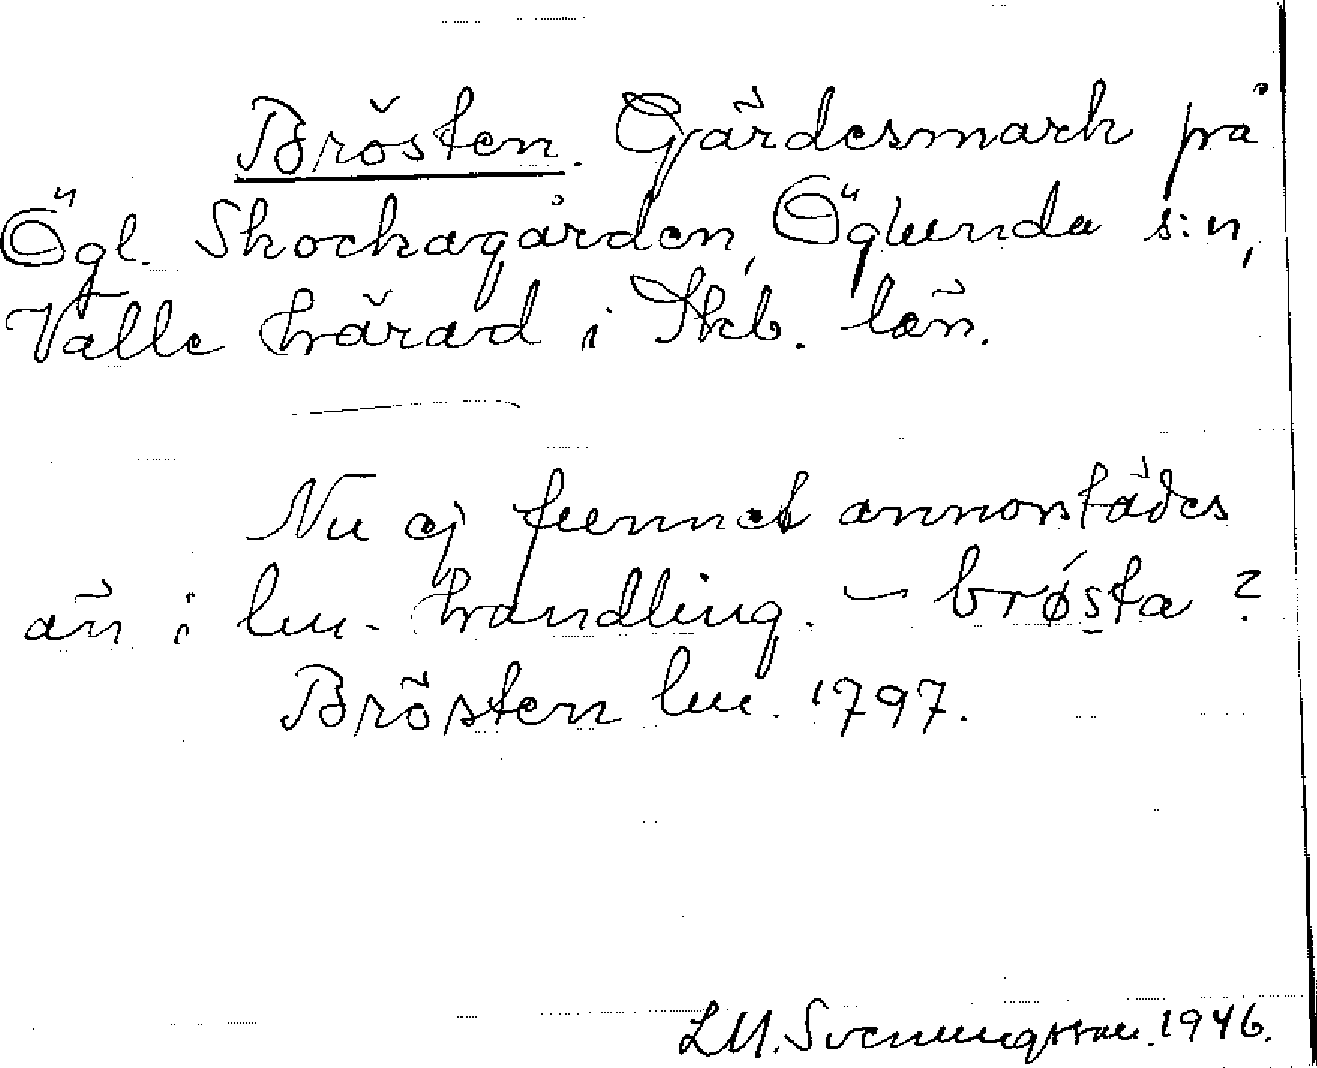 Brösten. Gärdesmark på
Ögl. Skockagården, Öglunda s:n,
Valle härad i Skb. län.
Nu ej funnet annorstädes
än i lm. handling. – brǿsta?
Brösten lm. 1797.
L.M. Svenungsson. 1946.